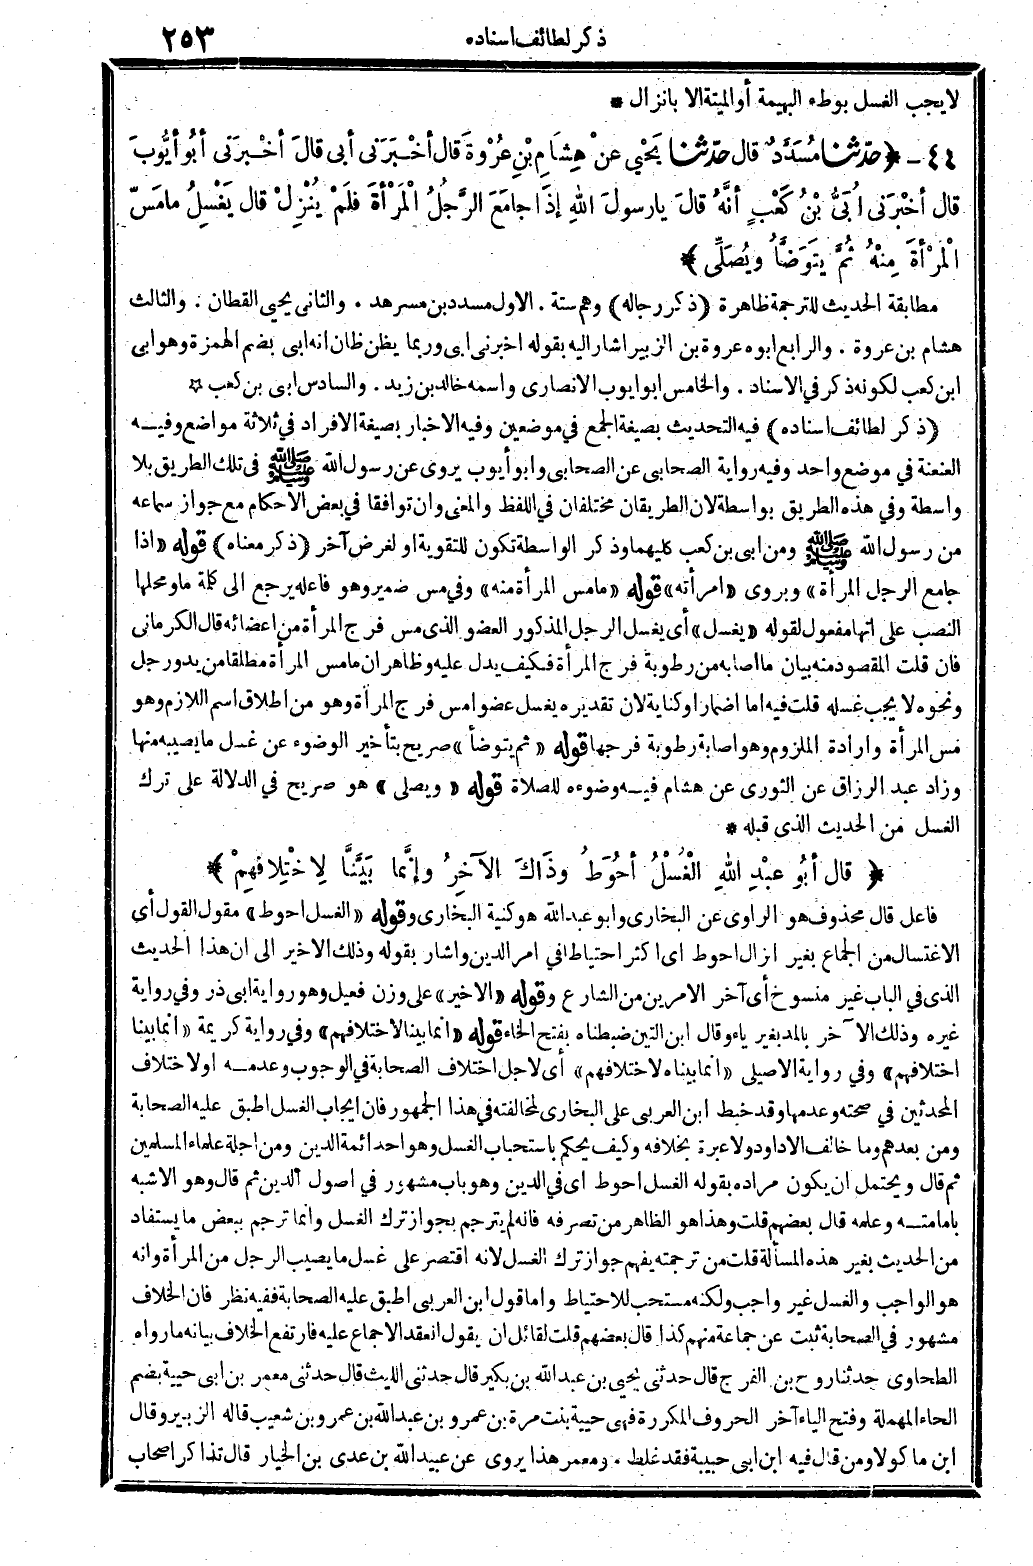 ذكر لطائف اسناده ٢٥٣
لا يجب الغسل بوطء البهيمة أو الميتة الا بانزال *
٤٤ - ﴿ حدّثنا مُسَدَّدٌ قال حدّثنا يَحْيٰي عنْ هِشَامِ بْنِ عُرْوَةَ قال أخْبَرَنى أبى قالَ أخْبرَنى أبُو أيُّوبَ
قال أخْبرَنى اُبَىُّ بْنُ كَعْبٍ أنَّهُ قالَ يارسولَ اللهِ إذَا جامَعَ الرَّجُلُ الْمَرْأةَ فَلَمْ يُنْزِلْ قال يَغْسِلُ مامَسَّ
الْمَرْأةَ مِنْهُ ثُمَّ يتَوَضَّأُ ويُصَلِّى ﴾
مطابقة الحديث للترجمة ظاهرة (ذكر رجاله) وهم ستة . الاول مسدد بن مسرهد . والثانى يحيى القطان . والثالث
هشام بن عروة . والرابع ابوه عروة بن الزبير اشار اليه بقوله اخبرنى ابى وربما يظن ظان انه ابى بضم الهمزة وهو ابى
ابن كعب لكونه ذكر في الاسناد . والخامس ابو ايوب الانصارى واسمه خالد بن زيد . والسادس ابى بن كعب ☆
(ذكر لطائف اسناده) فيه التحديث بصيغة الجمع في موضعين وفيه الاخبار بصيغة الافراد في ثلاثة مواضع وفيـــه
العنعنة في موضع واحد وفيه رواية الصحابى عن الصحابى وابو أيوب يروى عن رسول الله ﷺ فى تلك الطريق بلا
واسطة وفي هذه الطريق بواسطة لان الطريقان مختلفان في اللفظ والمعنى وان توافقا في بعض الاحكام مع جواز سماعه
من رسول الله ﷺ ومن ابى بن كعب كليهما وذكر الواسطة تكون للتقوية او لغرض آخر (ذكر معناه) قوله «اذا
جامع الرجل المرأة» ويروى «امرأته» قوله «مامس المرأة منه» وفي مس ضمير وهو فاعله يرجع الى كلمة ما ومحلها
النصب على انها مفعول لقوله «يغسل» أى يغسل الرجل المذكور العضو الذى مس فرج المرأة من اعضائه قال الكرمانى
فان قلت المقصود منه بيان ما اصابه من رطوبة فرج المرأة فكيف يدل عليه وظاهر ان مامس المرأة مطلقا من يد ورجل
ونحوه لا يجب غسله قلت فيه اما اضمار او كناية لان تقديره يغسل عضوا مس فرج المرأة وهو من اطلاق اسم اللازم وهو
مس المرأة وارادة الملزوم وهو اصابة رطوبة فرجها قوله «ثم يتوضأ» صريح بتأخير الوضوء عن غسل ما يصيبه منها
وزاد عبد الرزاق عن الثورى عن هشام فيـــه وضوءه للصلاة قوله «ويصلى» هو صريح في الدلالة على ترك
الغسل من الحديث الذى قبله *
﴿ قال أبُو عبْدِ اللهِ الْغُسْلُ أحْوَطُ وذَاكَ الآخِرُ وإنَّما بَيَّنَّا لِاخْتِلافِهِمْ ﴾
فاعل قال محذوف هو الراوى عن البخارى وابو عبد الله هو كنية البخارى وقوله «الغسل احوط» مقول القول أى
الاغتسال من الجماع بغير انزال احوط اى اكثر احتياطا في امر الدين واشار بقوله وذلك الاخير الى ان هذا الحديث
الذى في الباب غير منسوخ أى آخر الامرين من الشارع وقوله «الاخير» على وزن فعيل وهو رواية ابى ذر وفي رواية
غيره وذلك الآخر بالمد بغير ياء وقال ابن التين ضبطناه بفتح الخاء قوله «انما بينا لاختلافهم» وفي رواية كريمة «انما بينا
اختلافهم» وفي رواية الاصيلى «انما بيناه لاختلافهم» أى لاجل اختلاف الصحابة في الوجوب وعدمـــه او لاختلاف
المحدثين في صحته وعدمها وقد خبط ابن العربى على البخارى لمخالفته في هذا الجمهور فان ايجاب الغسل اطبق عليه الصحابة
ومن بعدهم وما خالف الا داود ولا عبرة بخلافه وكيف يحكم باستحباب الغسل وهو احد ائمة الدين ومن اجلة علماء المسلمين
ثم قال ويحتمل ان يكون مراده بقوله الغسل احوط اى في الدين وهو باب مشهور في اصول الدين ثم قال وهو الاشبه
بامامتـــه وعلمه قال بعضهم قلت وهذا هو الظاهر من تصرفه فانه لم يترجم بجواز ترك الغسل وانما ترجم ببعض ما يستفاد
من الحديث بغير هذه المسألة قلت من ترجمته يفهم جواز ترك الغسل لانه اقتصر على غسل ما يصيب الرجل من المرأة وانه
هو الواجب والغسل غير واجب ولكنه مستحب للاحتياط واما قول ابن العربى اطبق عليه الصحابة ففيه نظر فان الخلاف
مشهور في الصحابة ثبت عن جماعة منهم كذا قال بعضهم قلت لقائل ان يقول انعقد الاجماع عليه فارتفع الخلاف بيانه ما رواه
الطحاوى حدثنا روح بن الفرج قال حدثنى يحيى بن عبد الله بن بكير قال حدثنى الليث قال حدثنى معمر بن ابى حيية بضم
الحاء المهملة وفتح الياء آخر الحروف المكررة فهى حيية بنت مرة بن عمرو بن عبد الله بن عمرو بن شعيب قاله الزبير وقال
ابن ماكولا ومن قال فيه ابن ابى حبيبة فقد غلط . ومعمر هذا يروى عن عبيد الله بن عدى بن الخيار قال تذاكر اصحاب